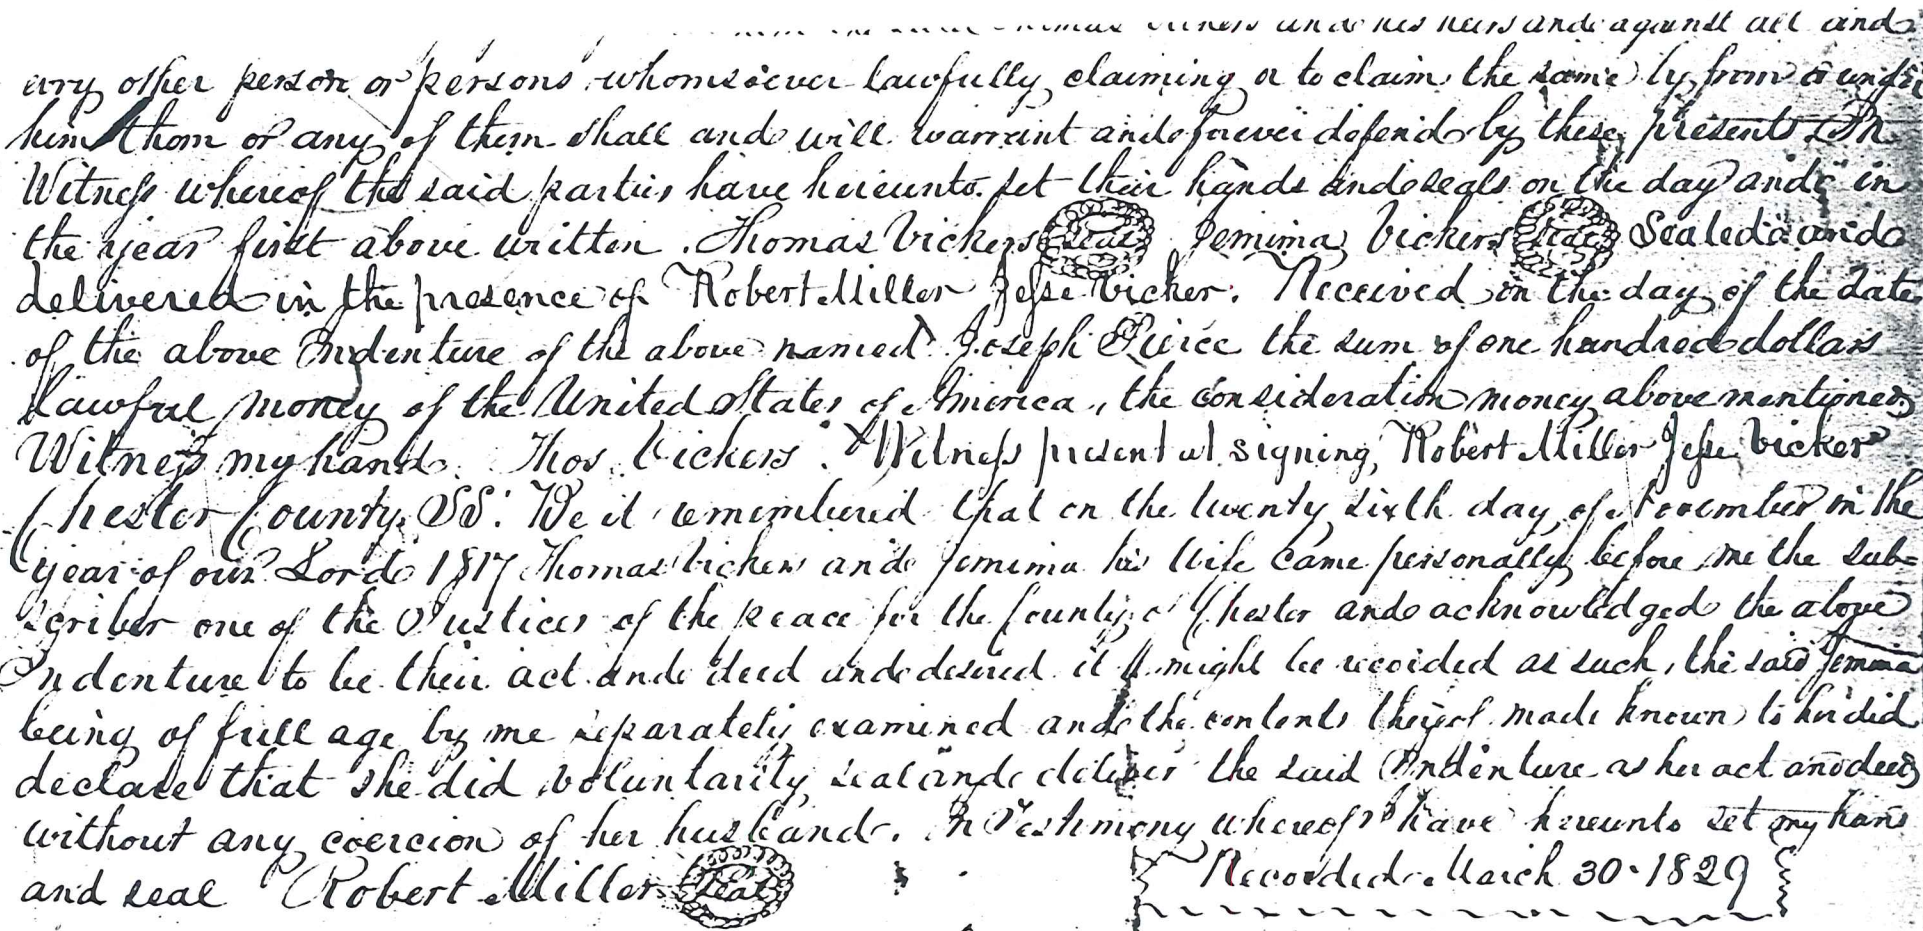 his heirs and against all and
evry other person or persons whomsoever lawfully claiming or to claim the same by from or under
him them or any of them shall and will warrant and forever defend by these presents In
Witness whereof the said parties have hereunto set their hands and seals on the day and in
the year first above written. Thomas Vickers Seal Jemima Vickers Seal Sealed and
delivered in the presence of Robert Miller Jesse Vicker. Received on the day of the date
of the above Indenture of the above named Joseph Pierce the sum of one hundred dollars
lawful money of the United States of America, the consideration money above mentioned
Witness my hand. Thos Vickers. Witness present at signing, Robert Miller Jesse Vicker
Chester County, SS. Be it remembered that on the twenty sixth day of November in the
year of our Lord 1817 Thomas Vickers and Jemima his Wife Came personally before me the sub=
scriber one of the Justices of the peace for the County of Chester and acknowledged the above
Indenture to be their act and deed and desired it might be recorded as such, the said Jemima
being of full age by me separately examined and the contents thereof made known to her did
declare that she did voluntarily seal and deliver the said Indenture as her act and deed
without any coercion of her husband. In Testimony whereof I have hereunto set my hand
and seal Robert Miller Seal Recorded March 30. 1829